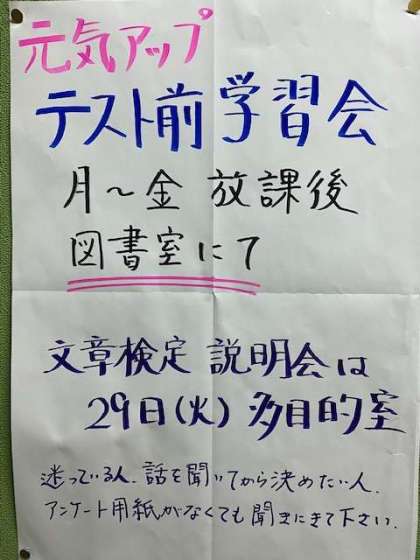 元気アップ
テスト前学習会
月～金 放課後
図書室にて
文章検定 説明会は
29日(火) 多目的室
迷っている人、話を聞いてから決めたい人、
アンケート用紙がなくても聞きにきて下さい。